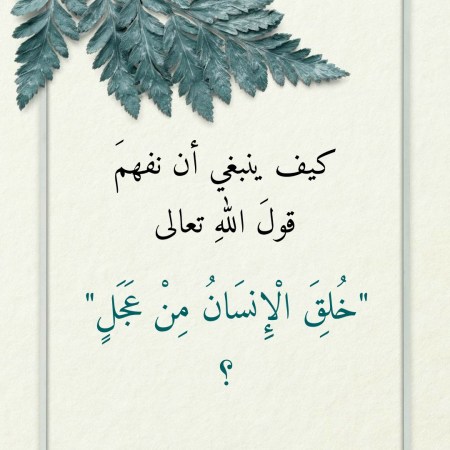 كيف ينبغي أن نفهمَ
قولَ اللهِ تعالى
"خُلِقَ الْإِنسَانُ مِنْ عَجَلٍ"
؟